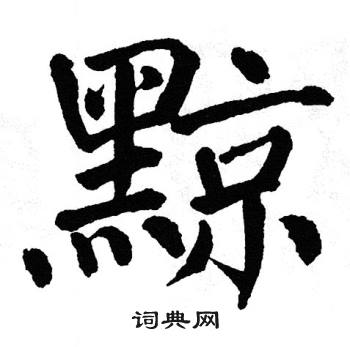 黥
词典网